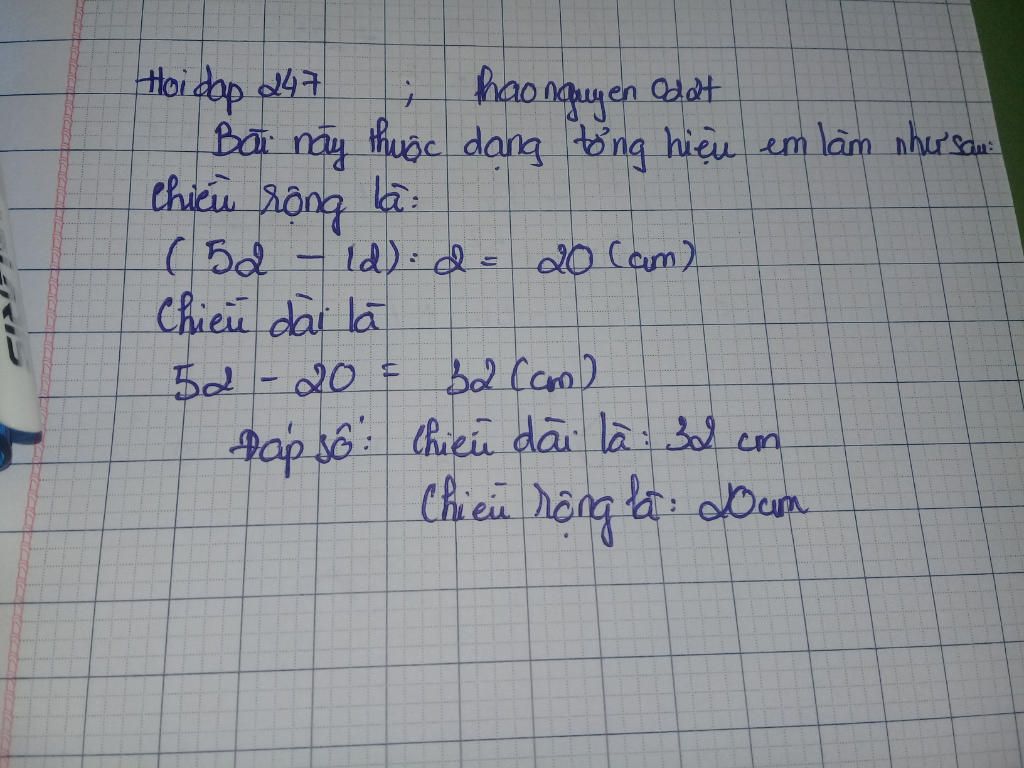 Hoi dap 247 ; thao nguyen
Bài này thuộc dạng tổng hiệu em làm như sau:
Chiều rộng là:
( 52 - 12) : 2 = 20 (cm)
Chiều dài là
52 - 20 = 32 (cm)
Đáp số: Chiều dài là: 32 cm
Chiều rộng là: 20cm